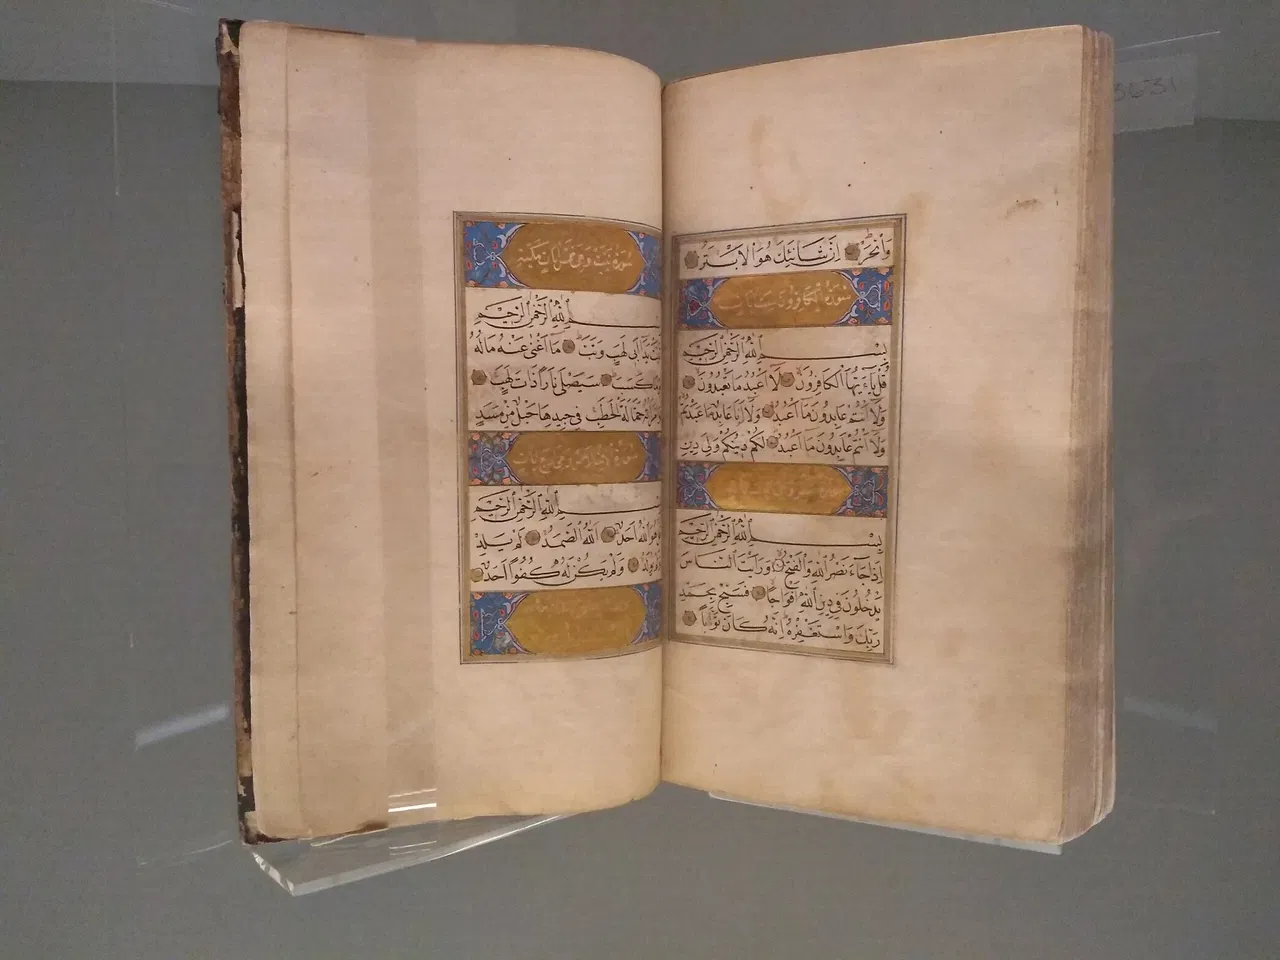 وَٱنْحَرْ إِنَّ شَانِئَكَ هُوَ ٱلْأَبْتَرُ
سورة الكافرون ست ايات
بِسْمِ ٱللَّهِ ٱلرَّحْمَٰنِ ٱلرَّحِيمِ
قُلْ يَاءَيُّهَا ٱلْكَافِرُونَ لَا أَعْبُدُ مَا تَعْبُدُونَ
وَلَا أَنْتُمْ عَابِدُونَ مَا أَعْبُدُ وَلَا أَنَا عَابِدٌ مَا عَبَدْتُمْ
وَلَا أَنْتُمْ عَابِدُونَ مَا أَعْبُدُ لَكُمْ دِينُكُمْ وَلِيَ دِينِ
بِسْمِ ٱللَّهِ ٱلرَّحْمَٰنِ ٱلرَّحِيمِ
إِذَا جَاءَ نَصْرُ ٱللَّهِ وَٱلْفَتْحُ وَرَأَيْتَ ٱلنَّاسَ
يَدْخُلُونَ فِي دِينِ ٱللَّهِ أَفْوَاجًا فَسَبِّحْ بِحَمْدِ
رَبِّكَ وَٱسْتَغْفِرْهُ إِنَّهُ كَانَ تَوَّابًا
سورة تبت وهي خمس ايات مكية
بِسْمِ ٱللَّهِ ٱلرَّحْمَٰنِ ٱلرَّحِيمِ
تَبَّتْ يَدَا أَبِي لَهَبٍ وَتَبَّ مَا أَغْنَى عَنْهُ مَالُهُ
وَمَا كَسَبَ سَيَصْلَى نَارًا ذَاتَ لَهَبٍ
وَٱمْرَأَتُهُ حَمَّالَةَ ٱلْحَطَبِ فِي جِيدِهَا حَبْلٌ مِنْ مَسَدٍ
سورة الاخلاص وهي اربع ايات
بِسْمِ ٱللَّهِ ٱلرَّحْمَٰنِ ٱلرَّحِيمِ
قُلْ هُوَ ٱللَّهُ أَحَدٌ ٱللَّهُ ٱلصَّمَدُ لَمْ يَلِدْ
وَلَمْ يُولَدْ وَلَمْ يَكُنْ لَهُ كُفُوًا أَحَدٌ
3631